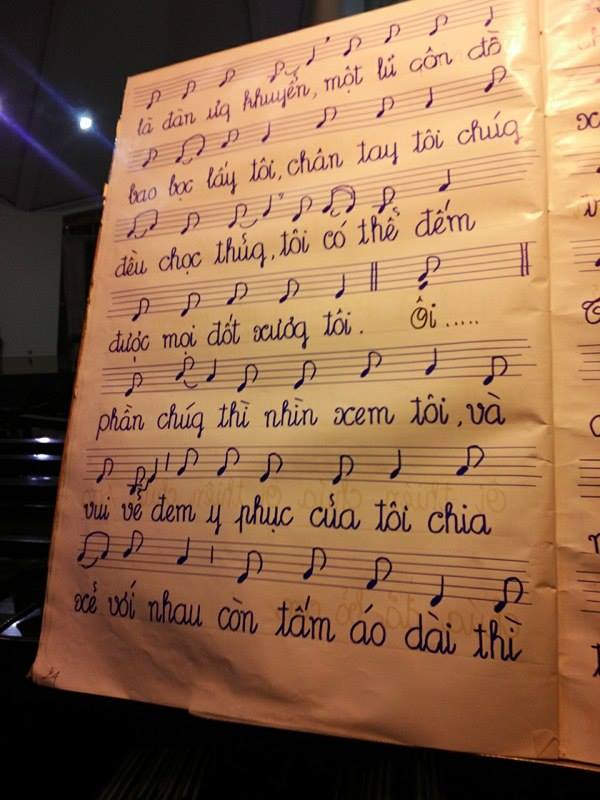 là đàn ưg khuyển, một lũ côn đồ
bao bọc lấy tôi, chân tay tôi chúg
đều chọc thủg, tôi có thể đếm
được mọi đốt xươg tôi. Ôi .....
phần chúg thì nhìn xem tôi, và
vui vẻ đem y phục của tôi chia
xẻ với nhau còn tấm áo dài thì